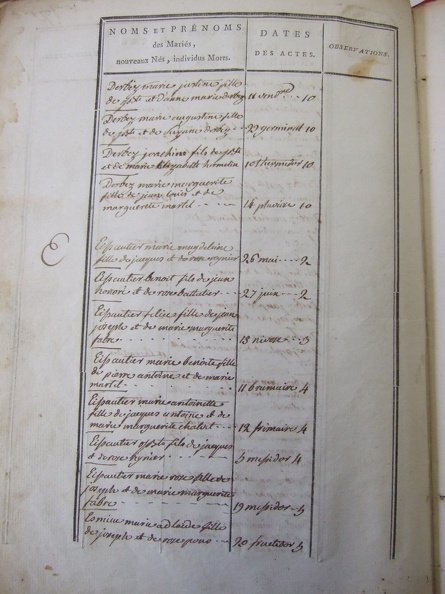 NOMS ET PRÉNOMS
des Mariés,
nouveaux Nés, individus Morts.
DATES
DES ACTES.
OBSERVATIONS.
Derbez marie justine fille
de et d'anne marie 11 10
Derbez marie augustine fille
de et de 29 germinal 10
Derbez joachim fils de
et de marie elizabeth 10 thermidor 10
Derbez marie marguerite
fille de jean louis et de
marguerite martel 14 pluviose 10
E
Eissautier marie magdelaine
fille de jacques et de rose 26 mai 2
Eissautier benoit fils de jean
honoré et de rose battalier 27 juin 2
Eissautier felice fille de jean
joseph et de marie marguerite
fabre 13 nivose 3
Eissautier marie benoite fille
de pierre antoine et de marie
martel 11 brumaire 4
Eissautier marie antoinette
fille de jacques antoine et de
marie marguerite 12 frimaire 4
Eissautier fils de jacques
et de rose 5 messidor 4
Eissautier marie rose fille de
joseph et de marie marguerite
fabre 19 messidor 5
marie adelaide fille
de joseph et de rose 20 fructidor 5